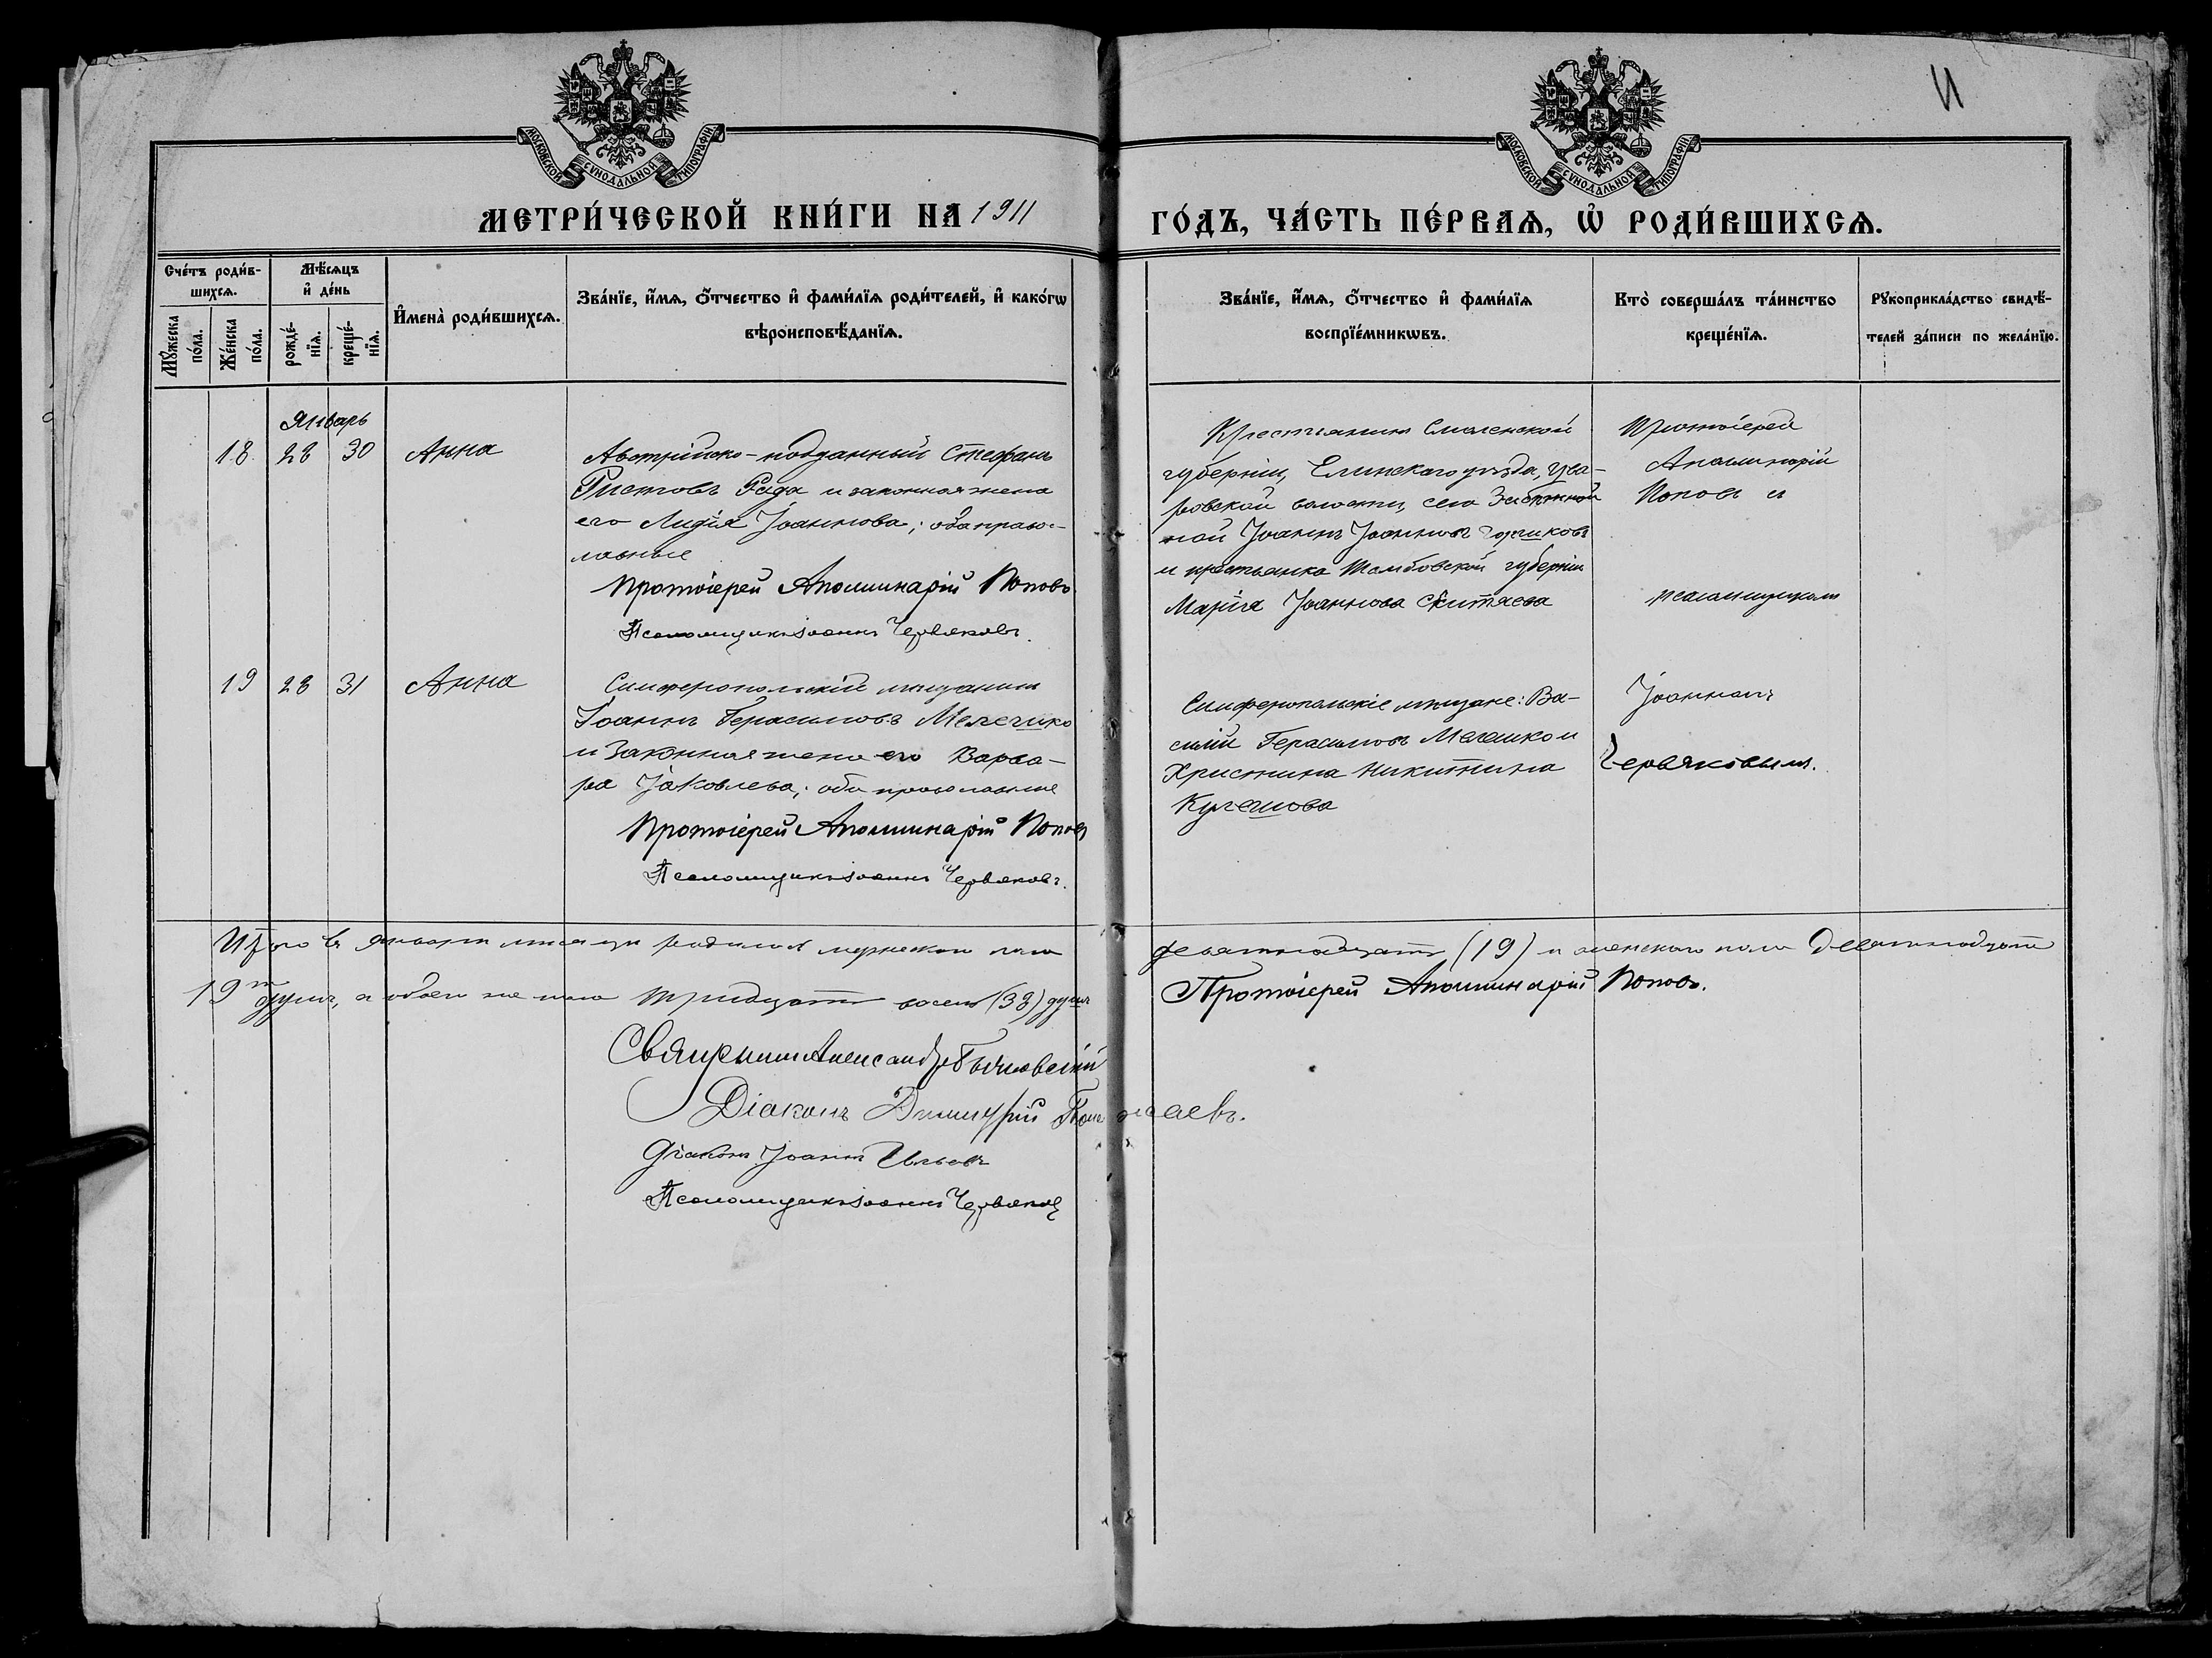 И
МОСКОВСКОЙ СѴНОДАЛЬНОЙ ТИПОГРАФІИ.
МОСКОВСКОЙ СѴНОДАЛЬНОЙ ТИПОГРАФІИ.
МЕТРИ́ЧЕСКОЙ КНИ́ГИ НА 1911
ГО́ДЪ, ЧА́СТЬ ПЕ́РВАѦ, Ѡ҆ РОДИ́ВШИХСѦ.
Сче́тъ роди́в-
шихсѧ.
Мꙋ́жеска
по́ла.
Же́нска
по́ла.
Мѣ́сѧцъ
и҆ де́нь
рожде́-
нїѧ.
креще́-
нїѧ.
И҆мена̀ роди́вшихсѧ.
Зва́нїе, и҆́мѧ, ѻ҆́тчество и҆ фами́лїѧ роди́телей, и҆ како́гѡ
вѣроисповѣ́данїѧ.
Зва́нїе, и҆́мѧ, ѻ҆́тчество и҆ фами́лїѧ
воспрїе́мникѡвъ.
Кто̀ соверша́лъ та́инство
креще́нїѧ.
Рꙋкоприкла́дство свидѣ́-
телей за́писи по жела́нїю.
Январь
18 28 30 Анна
Австрійско-подданный Стефанъ
Рада и законная жена
его Лидія Іоаннова; оба правос-
лавные
Протоіерей Аполлинарій Поповъ
Псаломщикъ Іоаннъ Червяковъ.
Крестьянинъ Смоленской
губерніи, Ельнскаго уѣзда, Ува-
ровской волости, села
Іоаннъ Іоанновъ
и крестьянка Тамбовской губерніи
Марія Іоаннова Скитяева
Протоіерей
Аполлинарій
Поповъ и
псаломщикомъ
19 28 31 Анна
Симферопольскій мѣщанинъ
Іоаннъ Герасимовъ
и законная жена его Варва-
ра Іаковлева; оба православные
Протоіерей Аполлинарій Поповъ
Псаломщикъ Іоаннъ Червяковъ.
Симферопольскіе мѣщане: Ва-
силій Герасимовъ и
Христина Никитина
Кулешова
Іоанномъ
Червяковымъ.
Итого въ январѣ мѣсяцѣ родилось мужескаго пола девятнадцать (19) и женскаго пола девятнадцать
19 душъ, а обоего же пола тридцать восемь (38) душъ
Протоіерей Аполлинарій Поповъ.
Священникъ Александръ
Діаконъ Димитрій
Діаконъ Іоаннъ Ильевъ
Псаломщикъ Іоаннъ Червяковъ